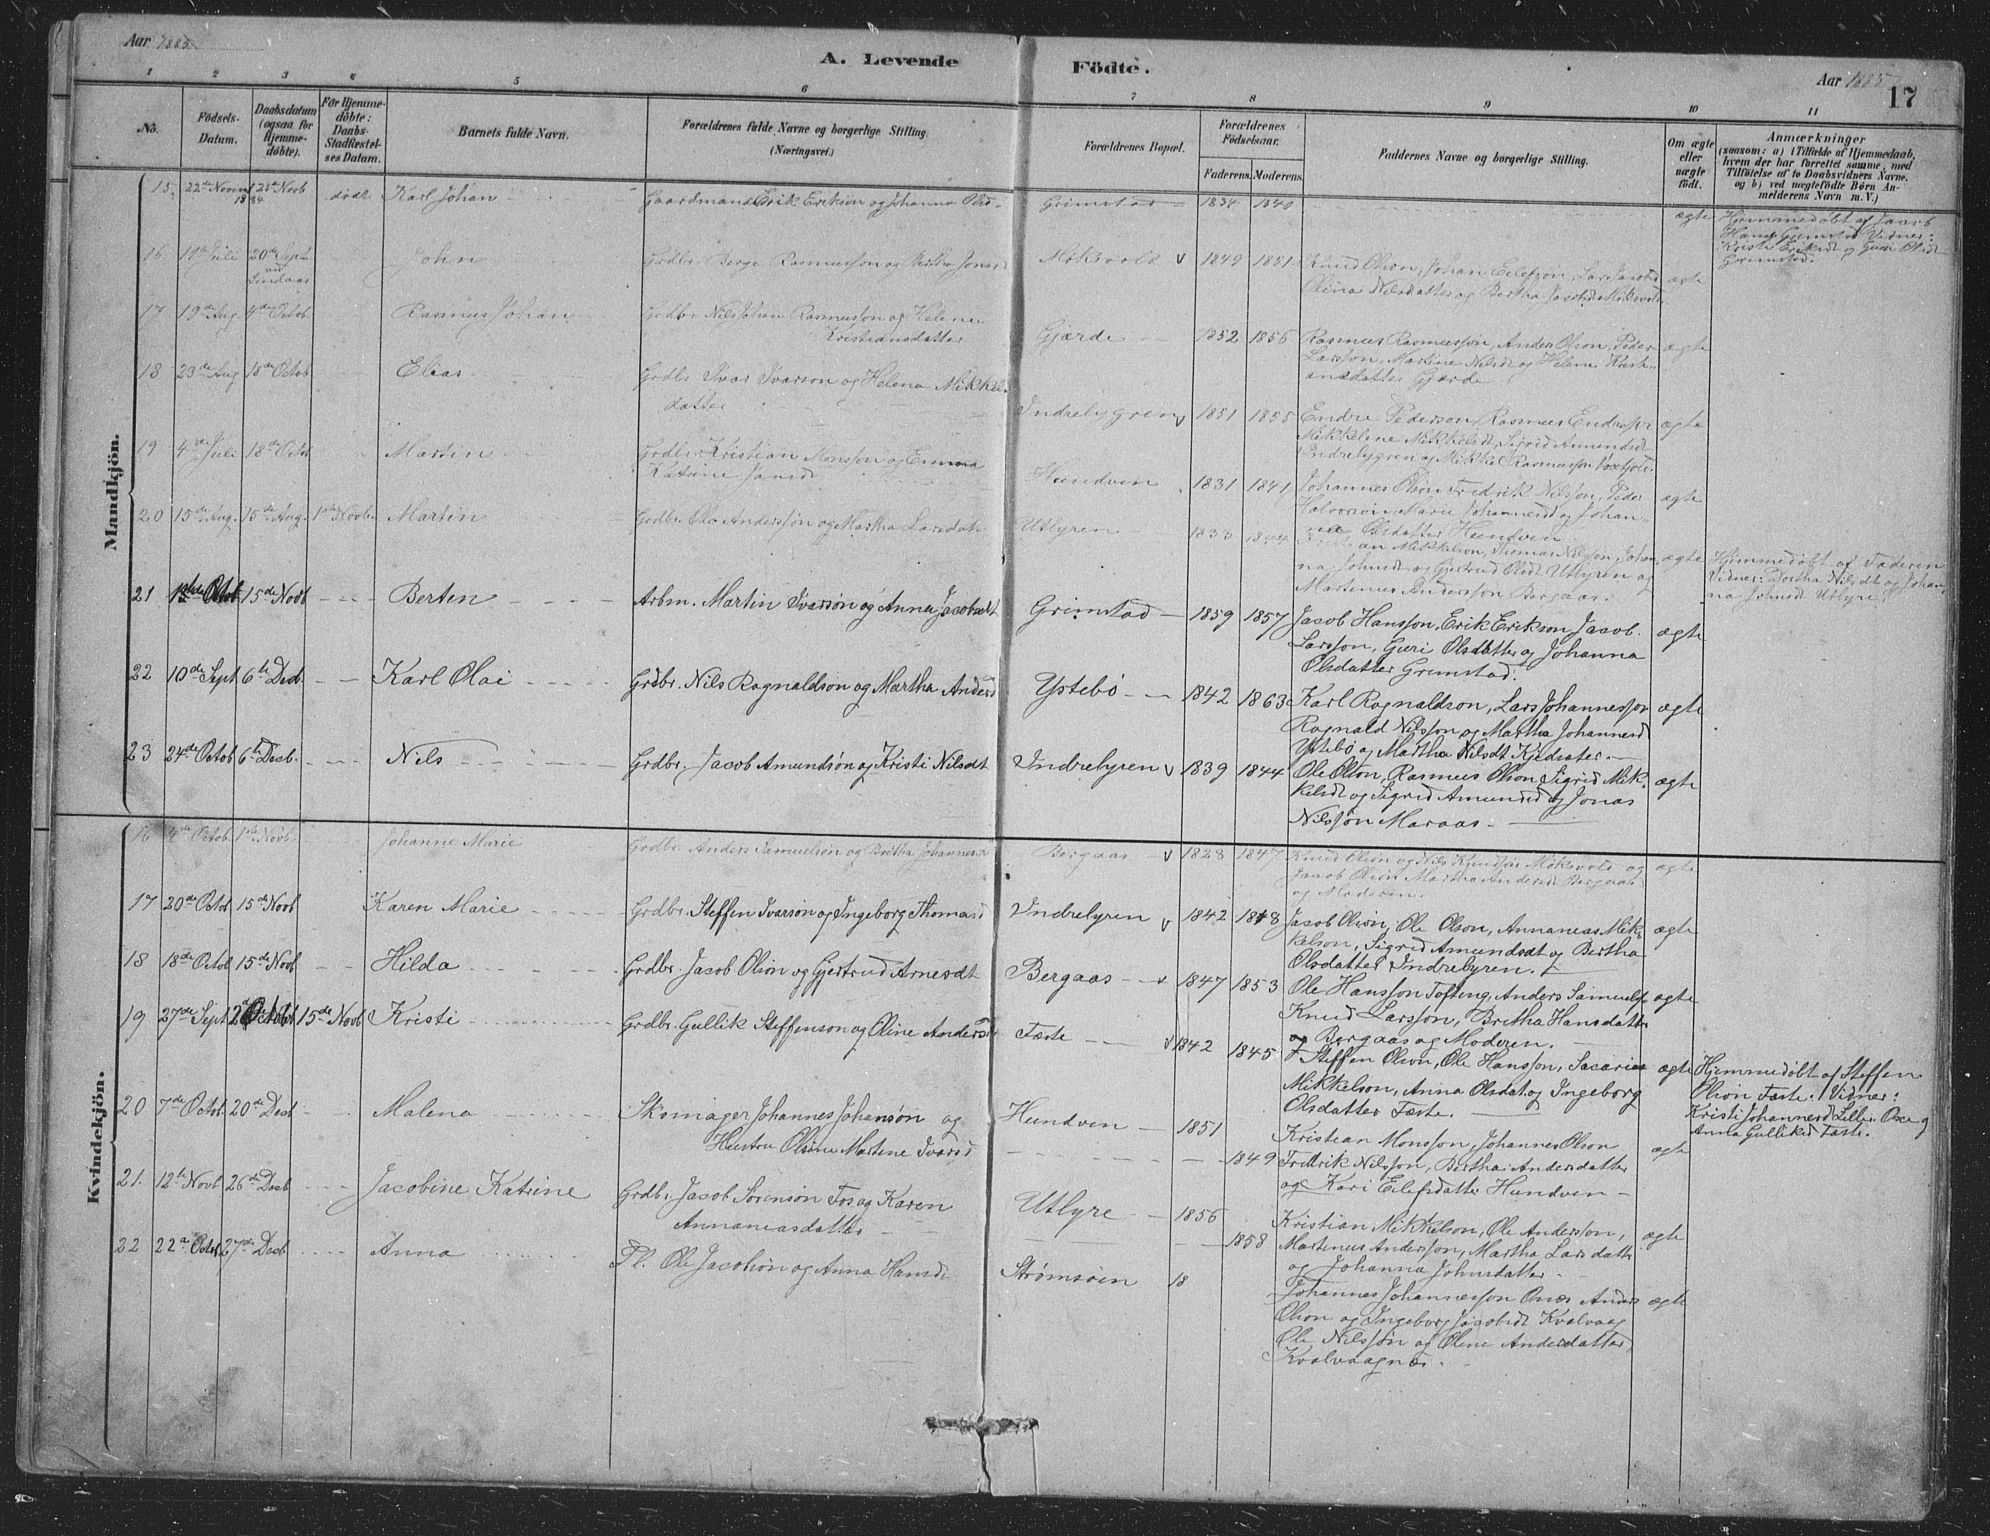 Aar 1885
A. Levende Födte.
Aar 1885
17
1 2 3 4 5 6 7 8 9 10 11
No.
Födsels-Datum.
Daabsdatum (ogsaa for Hjemmedöbte).
För Hjemmedöbte: Daabs-Stadfæstelses Datum.
Barnets fulde Navn.
Forældrenes fulde Navne og borgerlige Stilling. (Næringsvei.)
Forældrenes Bopæl.
Forældrenes Födselsaar.
Faderens. Moderens.
Faddernes Navne og borgerlige Stilling.
Om ægte eller uægte födt.
Anmærkninger
(saasom: a) i Tilfælde af Hjemmedaab, hvem der har forrettet samme, med Tilföielse af to Daabsvidners Navne. og b) ved uægtefödte Börn Anmelderens Navn m.V.)
Mandkjön.
15. 22de Novemb 1884 28de Novb död Karl Johan Gaardmand Erik Erikson og Johanna Olsd Grimstad 1834 1840 ægte
Hjemmedöbt af Jacob
Hans. Grimstad Vidner:
Kristi Eriksdt og Guri Olsdt
Grimstad.
16 19de Juli 20de Sept. ved Lindaas John Grdbr. Børge Rasmusson og Martha Jonsd Möksvold v 1849 1851 Knud Olson, Johan Eilefson, Lars Jacobs
Olina Nilsdatter og Bertha Jacobsd Möksvold ægte
17 19de Aug 4de Octob Rasmus Johan Grdbr Nils Johan Rasmusson og Helene
Kristiansdatter Gjærde 1852 1856 Rasmus Rasmusson, Anders Olson, Peder
Larsson, Martine Nilsdt og Helene Kristi-
ansdatter Gjærde ægte
18 23de Aug 18de Octob Elias Grdbr Ivar Ivarson og Helena Mikkels
datter Indrebygren v 1851 1855 Endre Pederson, Rasmus Endresson
Mikkeline Mikkelsdt, Sigrid Amundsdt
Indrebygren og Mikkel Rasmusson ægte
19 4de Juli 18de Octob Martin Grdbr Kristian Monsson og Emma
Katrine Jansd Hundven 1831 1841 Johannes Olson, Fredrik Nilsson, Peder
Halvorson, Marie Johannesdt og Johan-
na Olsdatter Hundven ægte
20 15de Aug. 15de Aug. 1ste Novb. Martin Grdbr. Ola Andersson og Martha Larsdatt Utbyren 1833 1844
Kristian Mikkelson, Thomas Nilsson, Johan-
na Johnsdt og Gjertrud Olsdt Utbyren og
Martenus Anderson Bergaas. ægte
Hjemmedöbt af Faderen
Vidner: Dortha Nilsdt og Johan-
na Johnsdt Utbyre.
21 Octob 15de Novb Berten Arbm. Martin Ivarsøn og Anna Jacobsdt Grimstad 1859 1857 Jacob Hansson, Erik Erikson, Jacob
Larsson, Guri Olsdatter og Johanna
Olsdatter Grimstad. ægte
22 10de Sept 6te Decb Karl Olai Grdbr. Nils Ragnaldson og Martha Andersd Ystebö 1842 1863 Karl Ragnaldson, Lars Johannesson
Ragnald Nilsson og Martha Johannesd
Ystebö og Martha Nilsdt ægte
23 24de Octob 6te Decb. Nils Grdbr. Jacob Amundsøn og Kristi Nilsdt Indrebyren v 1839 1844 Ole Olson, Rasmus Olson, Sigrid Mik-
kelsdt og Sigrid Amundsd og Jonas
Nilssøn Maraas. ægte
Kvindekjön.
16 4de Octob 1ste Novb. Johanne Marie Grdbr. Anders Samuelsøn og Brita Johannesd Bergaas v 1828 1847 Knud Olson og Nils Knudson Möksvold og
Jacob Olson Martha Andersd Bergaas
og Moderen. ægte
17 20de Octob 15de Novb Karen Marie Grdbr. Steffen Ivarsøn og Ingeborg Thomasd Indrebyren v 1842 1848 Jacob Olson, Ole Olson, Annanias Mik-
kelson, Sigrid Amundsdt og Bertha
Olsdatter Indrebyren. ægte
18 18de Octob 15de Novb Hilda Grdbr. Jacob Olson og Gjertrud Arnesdt Bergaas v 1847 1853 Ole Hansson Tofting, Anders Samuels
Knud Larsson, Britha Hansdatter
og Bergaas og Moderen. ægte
19 27de Sept Octob 15de Novb Kristi Grdbr. Gullik Steffenson og Oline Andersd Fæste v 1842 1845 Steffen Olson, Ole Hansson, Sacarias
Mikkelson, Anna Olsdat. og Ingeborg
Olsdatter Fæste. ægte
Hjemmedöbt af Steffen
Olson Fæste. Vidner:
Kristi Johannesd Lille- Oxe og
Anna Gulliksd Fæste.
20 7de Octob 20de Decb Malena Skomager Johannes Johansøn og
Hustru Oline Martene Ivarsd Hundven 1851 1849 Kristian Monsson, Johannes Olson
Fredrik Nilsson, Bertha Andersdatter
og Kari Eilefsdatter Hundven ægte
21. 12te Novb 26de Decb Jacobine Katrine Grdbr. Jacob Sörensøn Fos og Karen
Annaniasdatter Utbyre 1856 1858 Kristian Mikkelson, Ole Andersson,
Martinus Andersson, Martha Larsdatter
og Johanna Johnsdatter ægte
22 22de Octob. 27de Decb Anna Pl. Ole Jacobson og Anna Hansdt Strömsöen 18
Johannes Johannesson Anders
Olson og Ingeborg Jacobsdt Kvalvaag
Ole Nilsson og Oline Andersdatter
Kvalvaagnæs. ægte